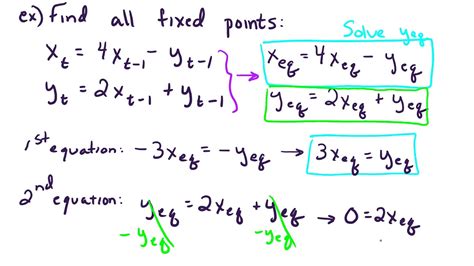 ex) Find all fixed points:
Solve yeq
xt = 4xt-1 - yt-1 → xeq = 4xeq - yeq
yt = 2xt-1 + yt-1 yeq = 2xeq + yeq
1st equation: -3xeq = -yeq → 3xeq = yeq
2nd equation: yeq = 2xeq + yeq → 0 = 2xeq
-yeq -yeq